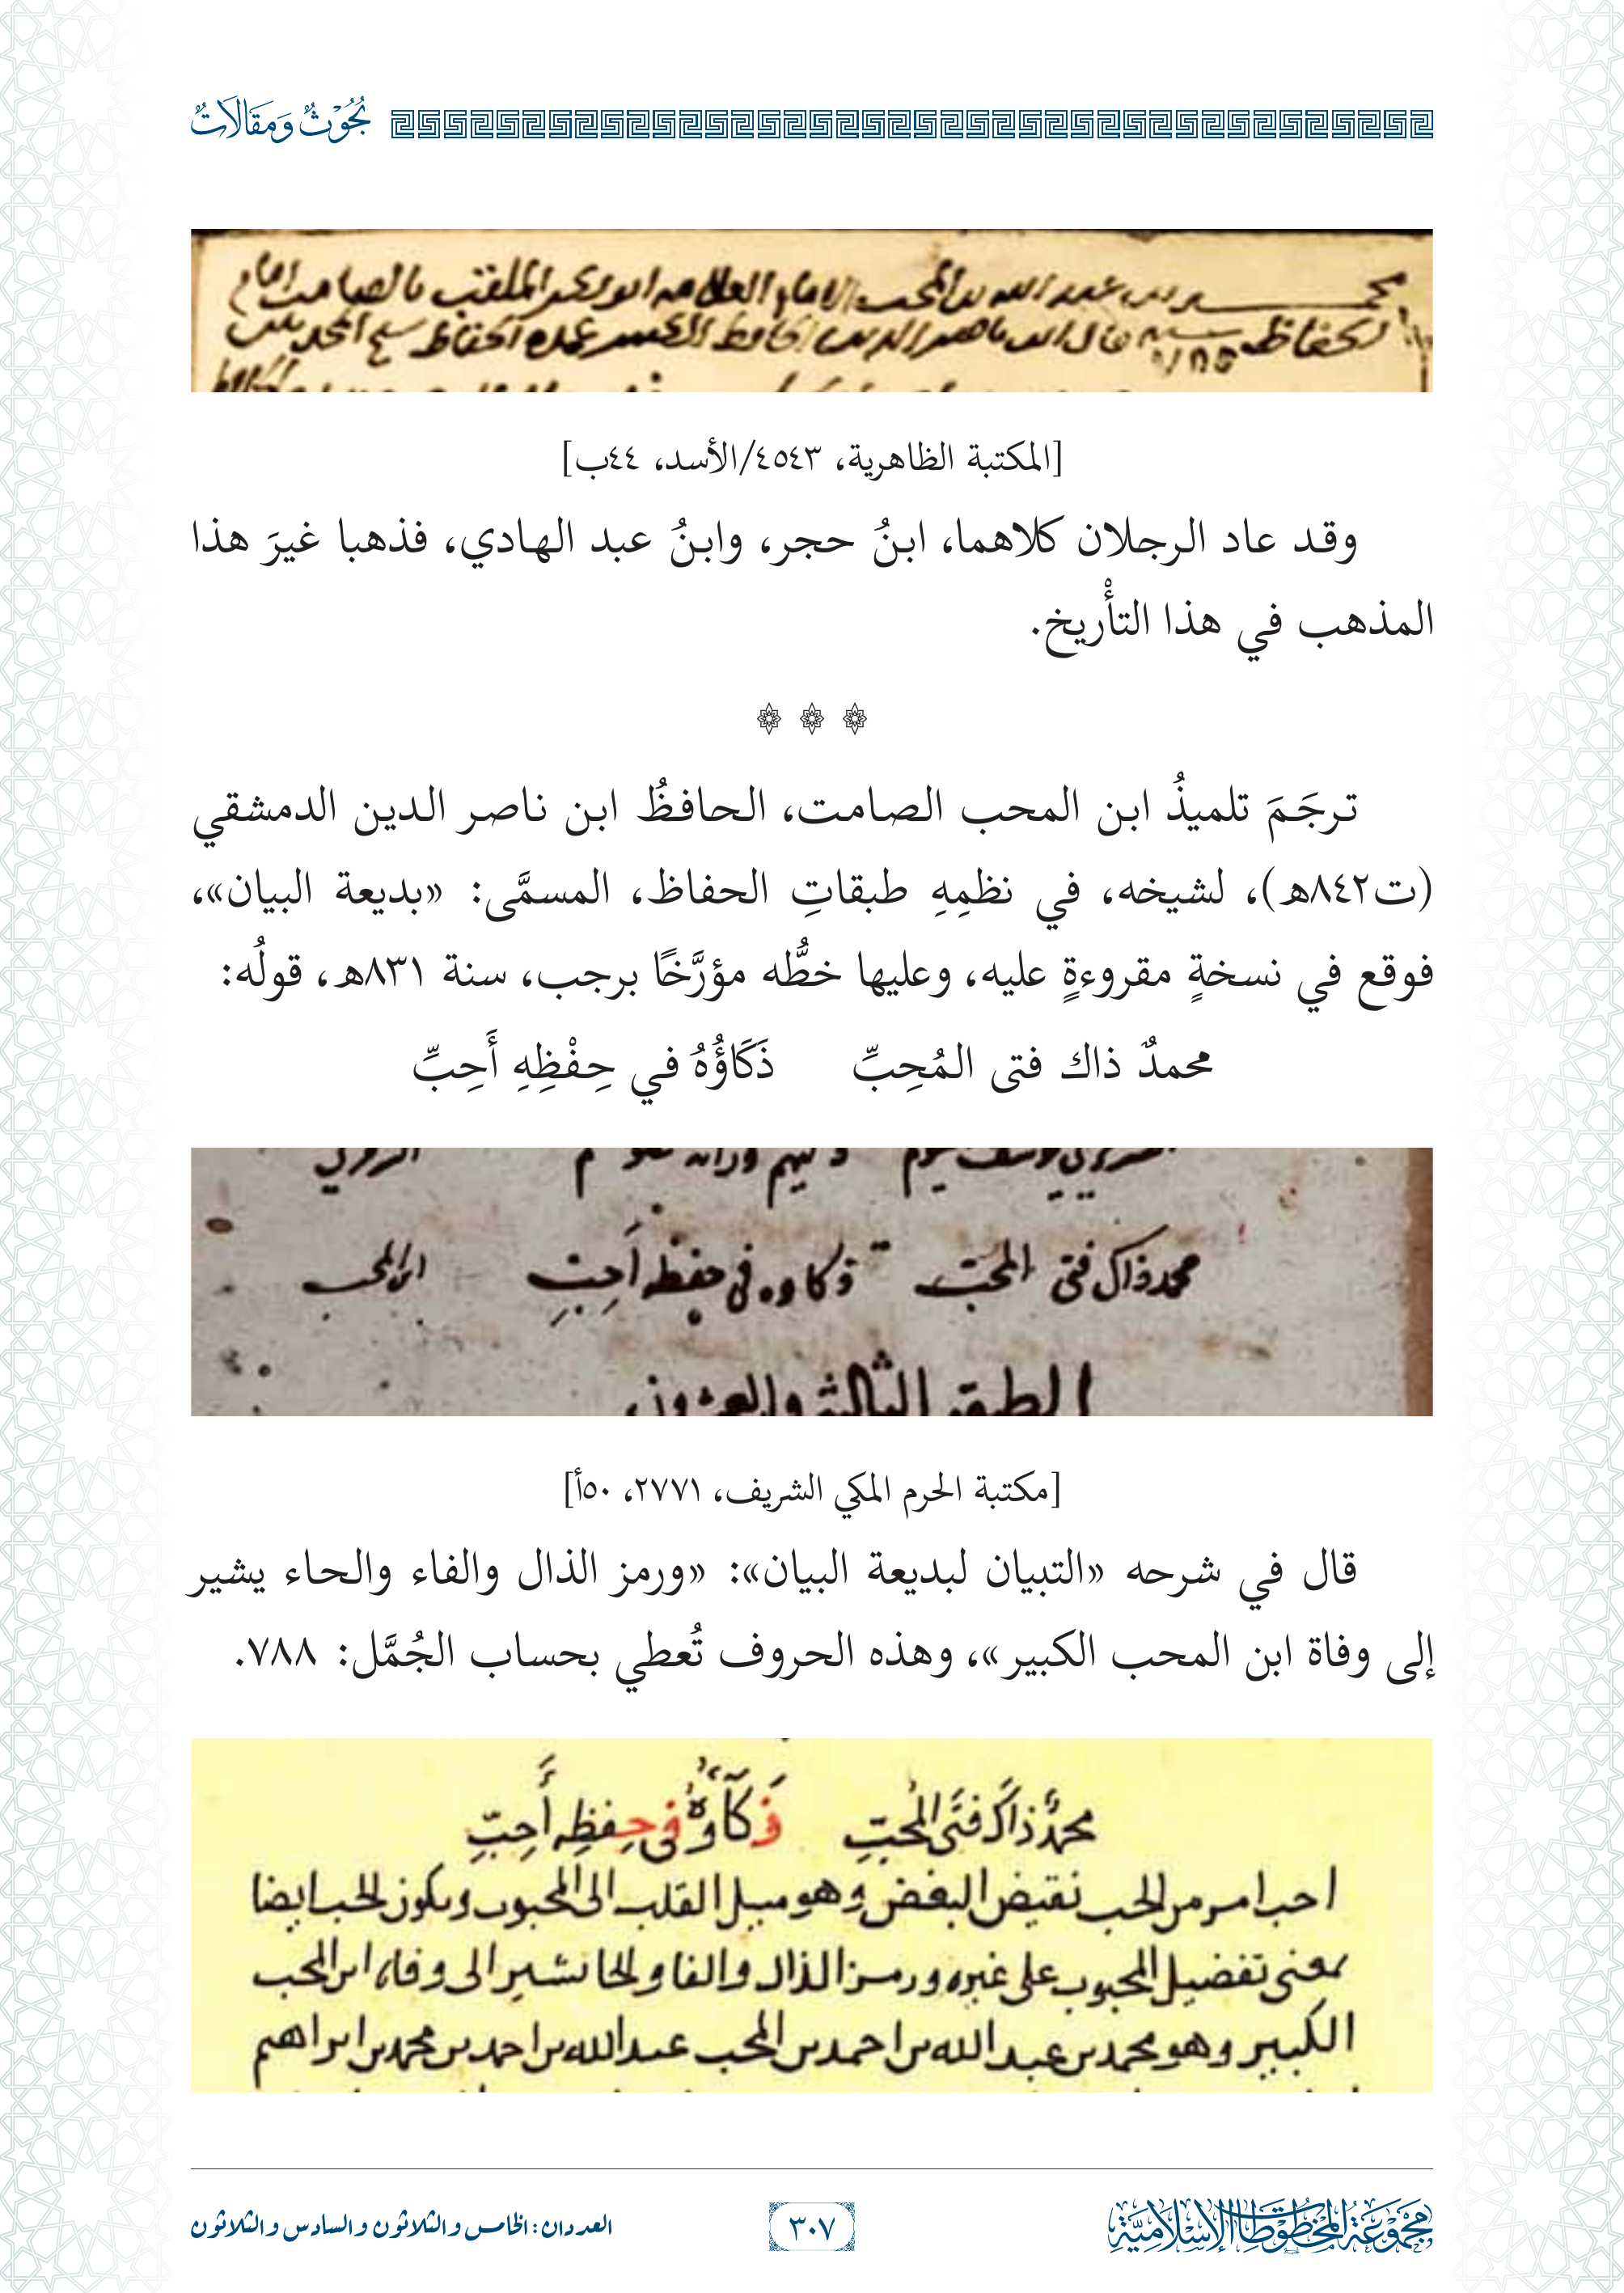 بُحُوْثٌ وَمَقَالَاتٌ
محمد بن عبد الله بن المحب الامام العلامه ابو بكر الملقب بالصامت امام
الحفاظ سنه قال ابن ناصر الدين الحافظ الكبير عمدة الحفاظ شيخ المحدثين
[المكتبة الظاهرية، ٤٥٤٣/الأسد، ٤٤ب]
وقد عاد الرجلان كلاهما، ابنُ حجر، وابنُ عبد الهادي، فذهبا غيرَ هذا
المذهب في هذا التأْريخ.
ترجَمَ تلميذُ ابن المحب الصامت، الحافظُ ابن ناصر الدين الدمشقي
(ت٨٤٢هـ)، لشيخه، في نظمِهِ طبقاتِ الحفاظ، المسمَّى: «بديعة البيان»،
فوقع في نسخةٍ مقروءةٍ عليه، وعليها خطُّه مؤرَّخًا برجب، سنة ٨٣١هـ، قولُه:
محمدٌ ذاك فتى المُحِبِّ ذَكَاؤُهُ في حِفْظِهِ أَحِبِّ
محمد ذاك فتى المحب ذكاوه في حفظه أَحِبِّ ابن المحب
الطبقة الثالثة والعشرون
[مكتبة الحرم المكي الشريف، ٢٧٧١، ٥٠أ]
قال في شرحه «التبيان لبديعة البيان»: «ورمز الذال والفاء والحاء يشير
إلى وفاة ابن المحب الكبير»، وهذه الحروف تُعطي بحساب الجُمَّل: ٧٨٨.
محمدٌ ذاكَ فتَى المُحبِّ ذَكآوُهُ في حِفظِه أَحِبِّ
احب امر من الحب نقيض البغض وهو ميل القلب الى المحبوب ويكون الحب ايضا
بمعنى تفضيل المحبوب على غيره ورمز الذال والفا والحا نشير الى وفاه ابن المحب
الكبير وهو محمد بن عبد الله بن احمد بن المحب عبد الله بن احمد بن محمد بن ابراهيم
مَجْمُوعَةُ المَخْطُوطَاتِ الإِسْلَامِيَّةِ
٣٠٧
العددان: الخامس والثلاثون والسادس والثلاثون